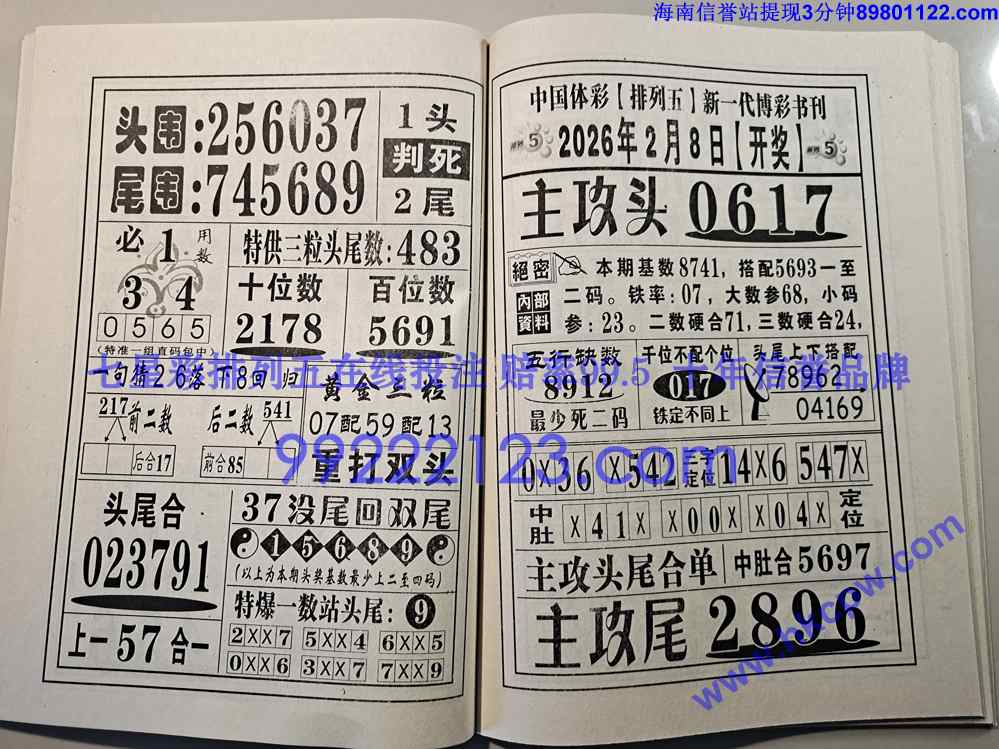 海南信誉站提现3分钟89801122.com
头围:256037
尾围:745689
1头
判死
2尾
必1用数
3 4
0565
(特准一组直码包中)
特供三粒头尾数:483
十位数
2178
百位数
5691
一句猜26落下8回归
217前二数
后二数541
后合17
前合85
黄金三粒
07配59配13
重打双头
头尾合
023791
上一57合一
37没尾回双尾
15689
(以上为本期头奖基数最少上二至四码)
特爆一数站头尾:9
2XX7 5XX4 6XX5
0XX6 3XX7 7XX9
中国体彩【排列五】新一代博彩书刊
5 2026年2月8日【开奖】 5
主攻头0617
絕密
內部資料
本期基数8741,搭配5693一至
二码。铁率:07,大数参68,小码
参:23。二数硬合71,三数硬合24,
五行缺数
8912
最少死二码
千位不配个位
017
铁定不同上
头尾上下搭配
78962
04169
0X36 X542 三字定位 14X6 547X
中肚 X41X X00X X04X 定位
主攻头尾合单
中肚合5697
主攻尾2896
七星彩排列五在线投注 赔率99.5 十年信誉品牌
99222123.com